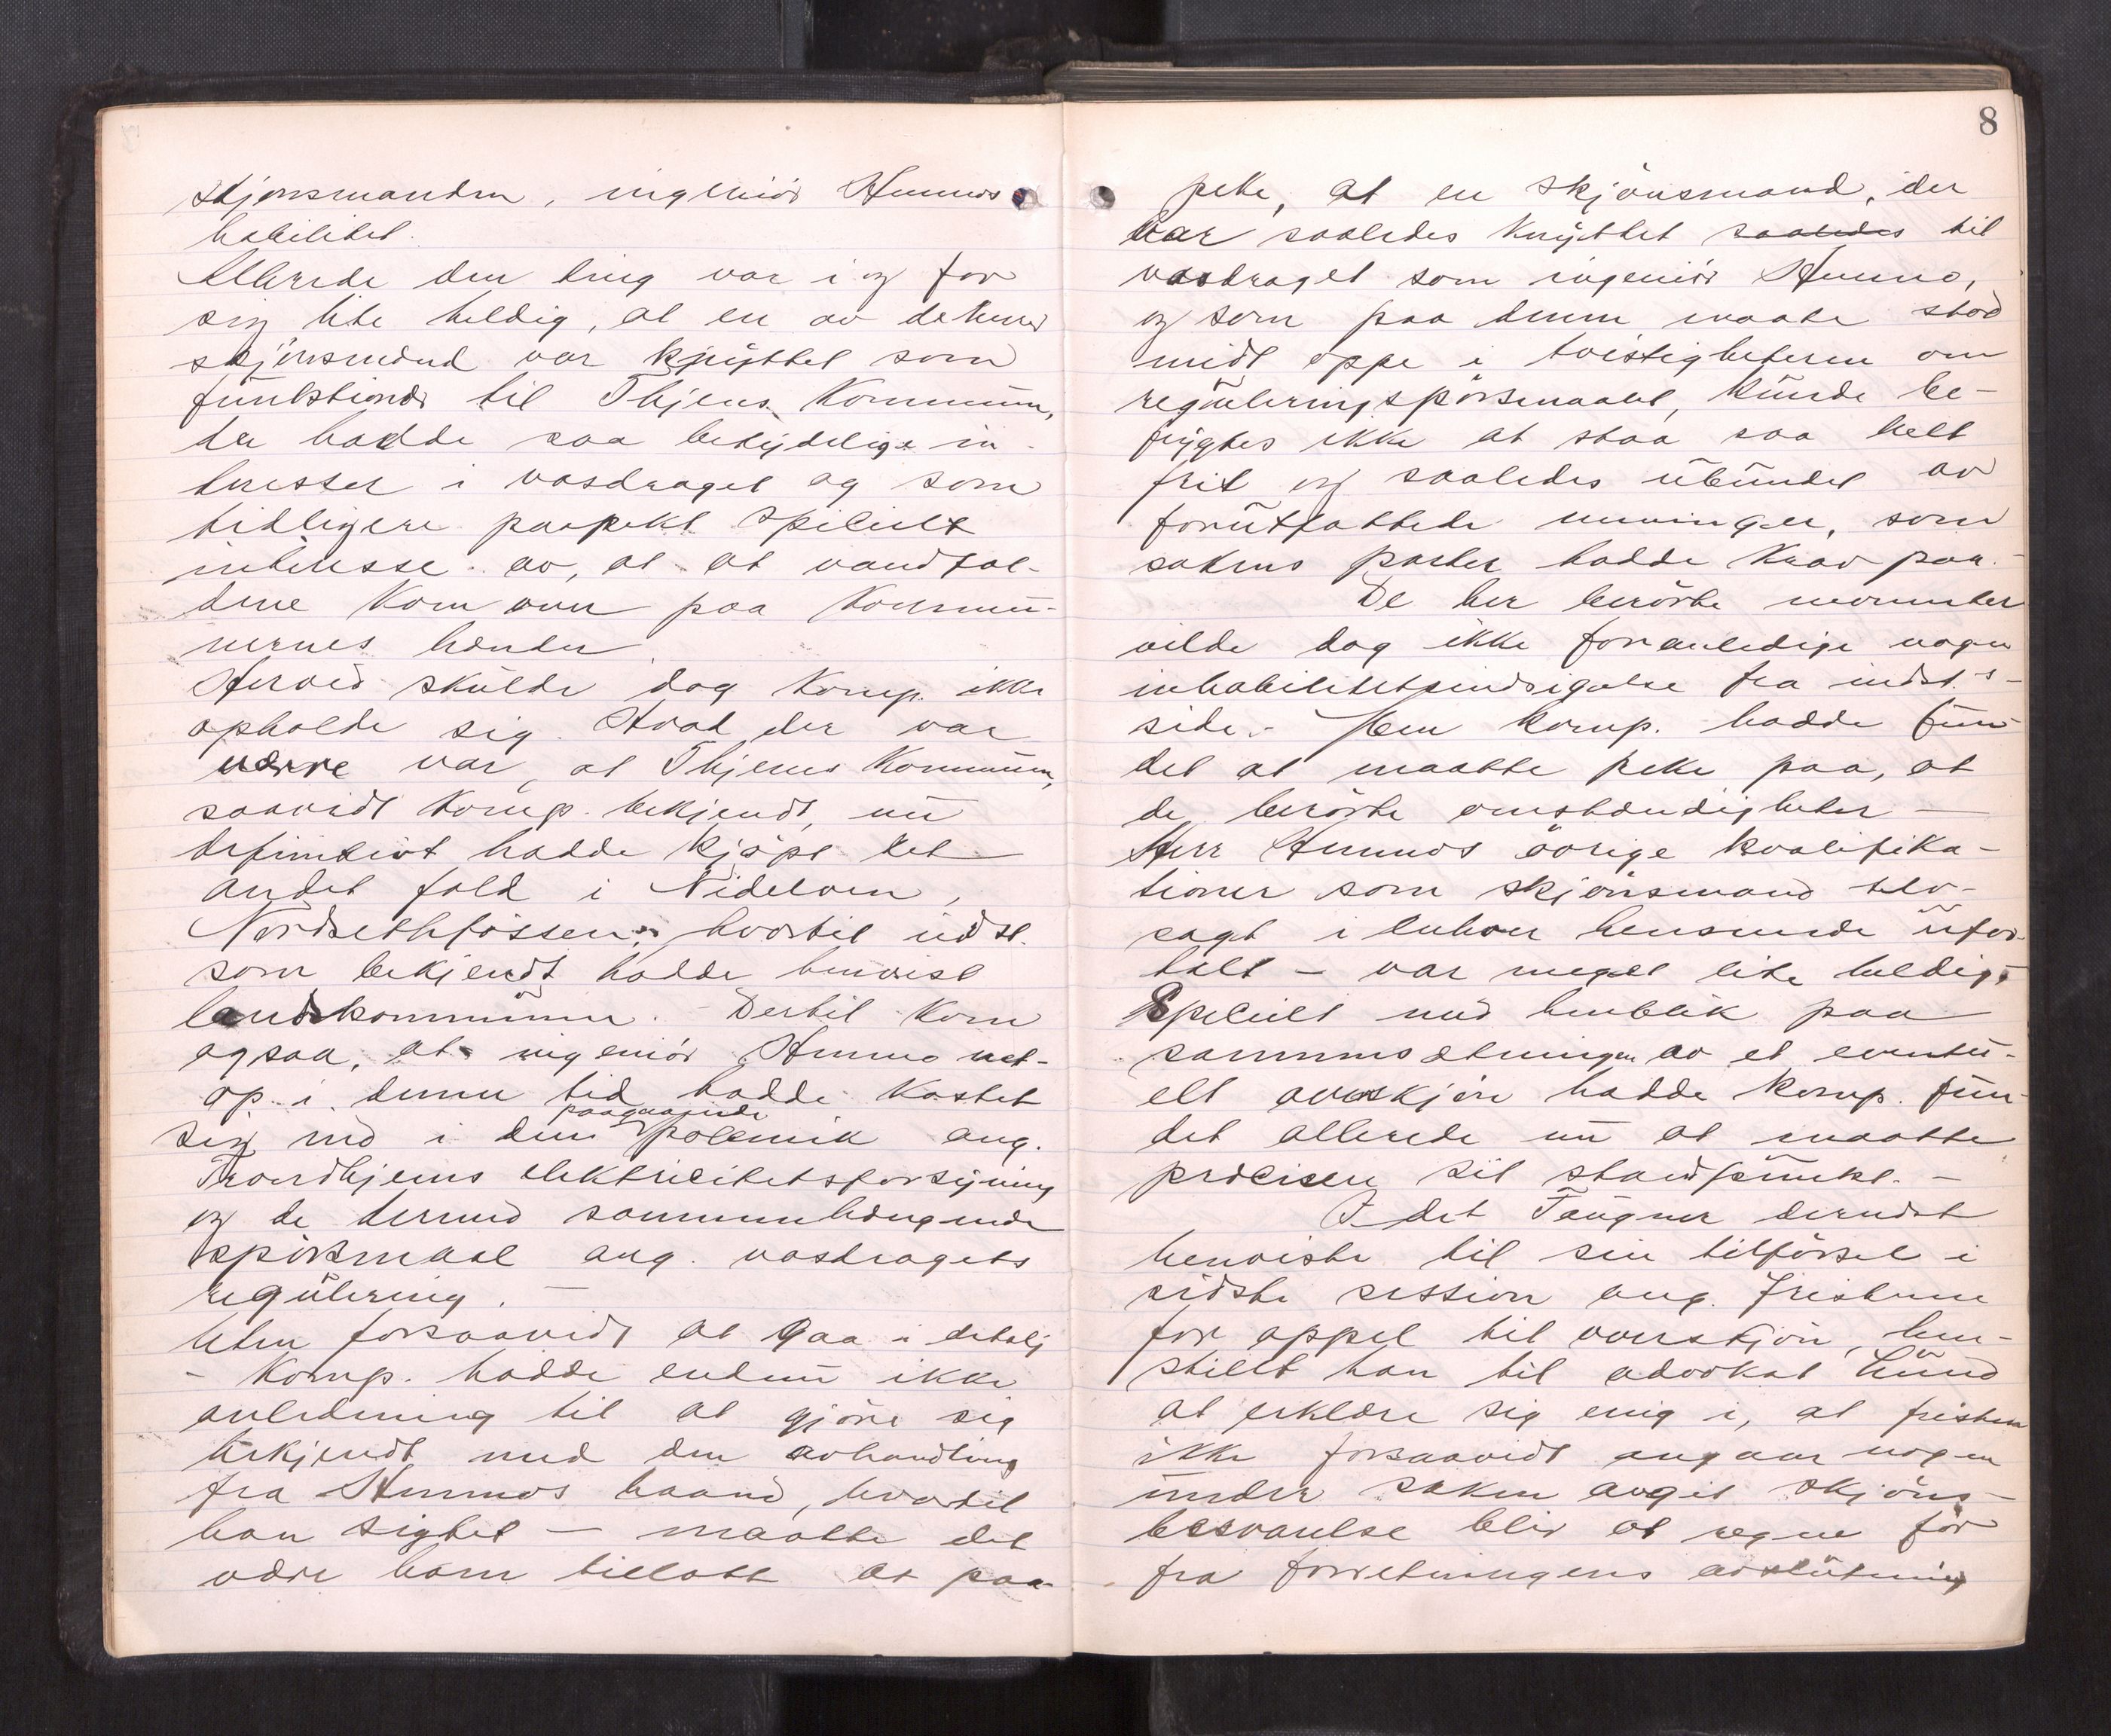 skjønsmanden, ingeniør Hunnes
habilitet.
Allerede den ting var i og for
sig lite heldig, at en av dekured
skjønsmænd var knyttet som
funktionær til Thjems Kommune,
der hadde saa betydelige in-
teresser i vasdraget og som
tidligere paapekt specielt
interesse av, at at vandfal-
dene kom over paa Kommu-
nernes hænder.
Herved skulde dog Komp. ikke
opholde sig. Hvad der var
værre var, at Thjems Kommune,
saavidt Komp. bekjendt, nu
definitivt hadde kjøpt det
andet fald i Nidelven,
Nordsethfossen, hvortil udst.
som bekjendt hadde henvist
landskommunen. - Dertil kom
ogsaa, at ingeniør Hunno net-
op i denne tid hadde kastet
paagaaende
sig ind i den polemik ang.
Trondhjems elektricitetsforsyning
og de dermed sammenhængende
spørsmaal ang. vasdragets
regulering. -
Uten forsaavidt at gaa i detalj
- Komp. hadde endnu ikke
anledning til at gjøre sig
bekjendt med den avhandling
fra Hunnos haand, hvortil
han sigtet - maatte det
være ham tillatt at paa-
8
peke, at en skjønsmand, der
var saaledes knyttet saaledes til
vasdraget som ingeniør Hunno,
og som paa denne maate stod
midt oppe i tvistighetene om
reguleringsspørsmaalet, kunde be-
frygtes ikke at staa saa helt
frit og saaledes ubundet av
forutfattede meninger, som
sakens parter hadde krav paa.
De her berørte momenter
vilde dog ikke foranledige nogen
inhabilitetsindsigelse fra indst.s-
side. - Men Komp. hadde fun-
det at maatte peke paa, at
de berørte omstændigheter -
Herr Hunnos øvrige kvalifika-
tioner som skjønsmand selv-
sagt i enhver henseende ufor-
talt - var meget lite heldig.
Specielt med henblik paa
sammensætningen av et eventu-
elt overskjøn hadde Komp. fun-
det allerede nu at maatte
præcisere sit standpunkt. -
I det Taugner dernæst
henviste til sin tilførsel i
sidste session ang. fristene
for appel til overskjøn, hen-
stillet han til advokat Lund
at erklære sig enig i, at fristen
ikke forsaavidt angaar nogen
under saken avgit skjøns-
besvarelse blir at regne før
fra forretningens avslutning